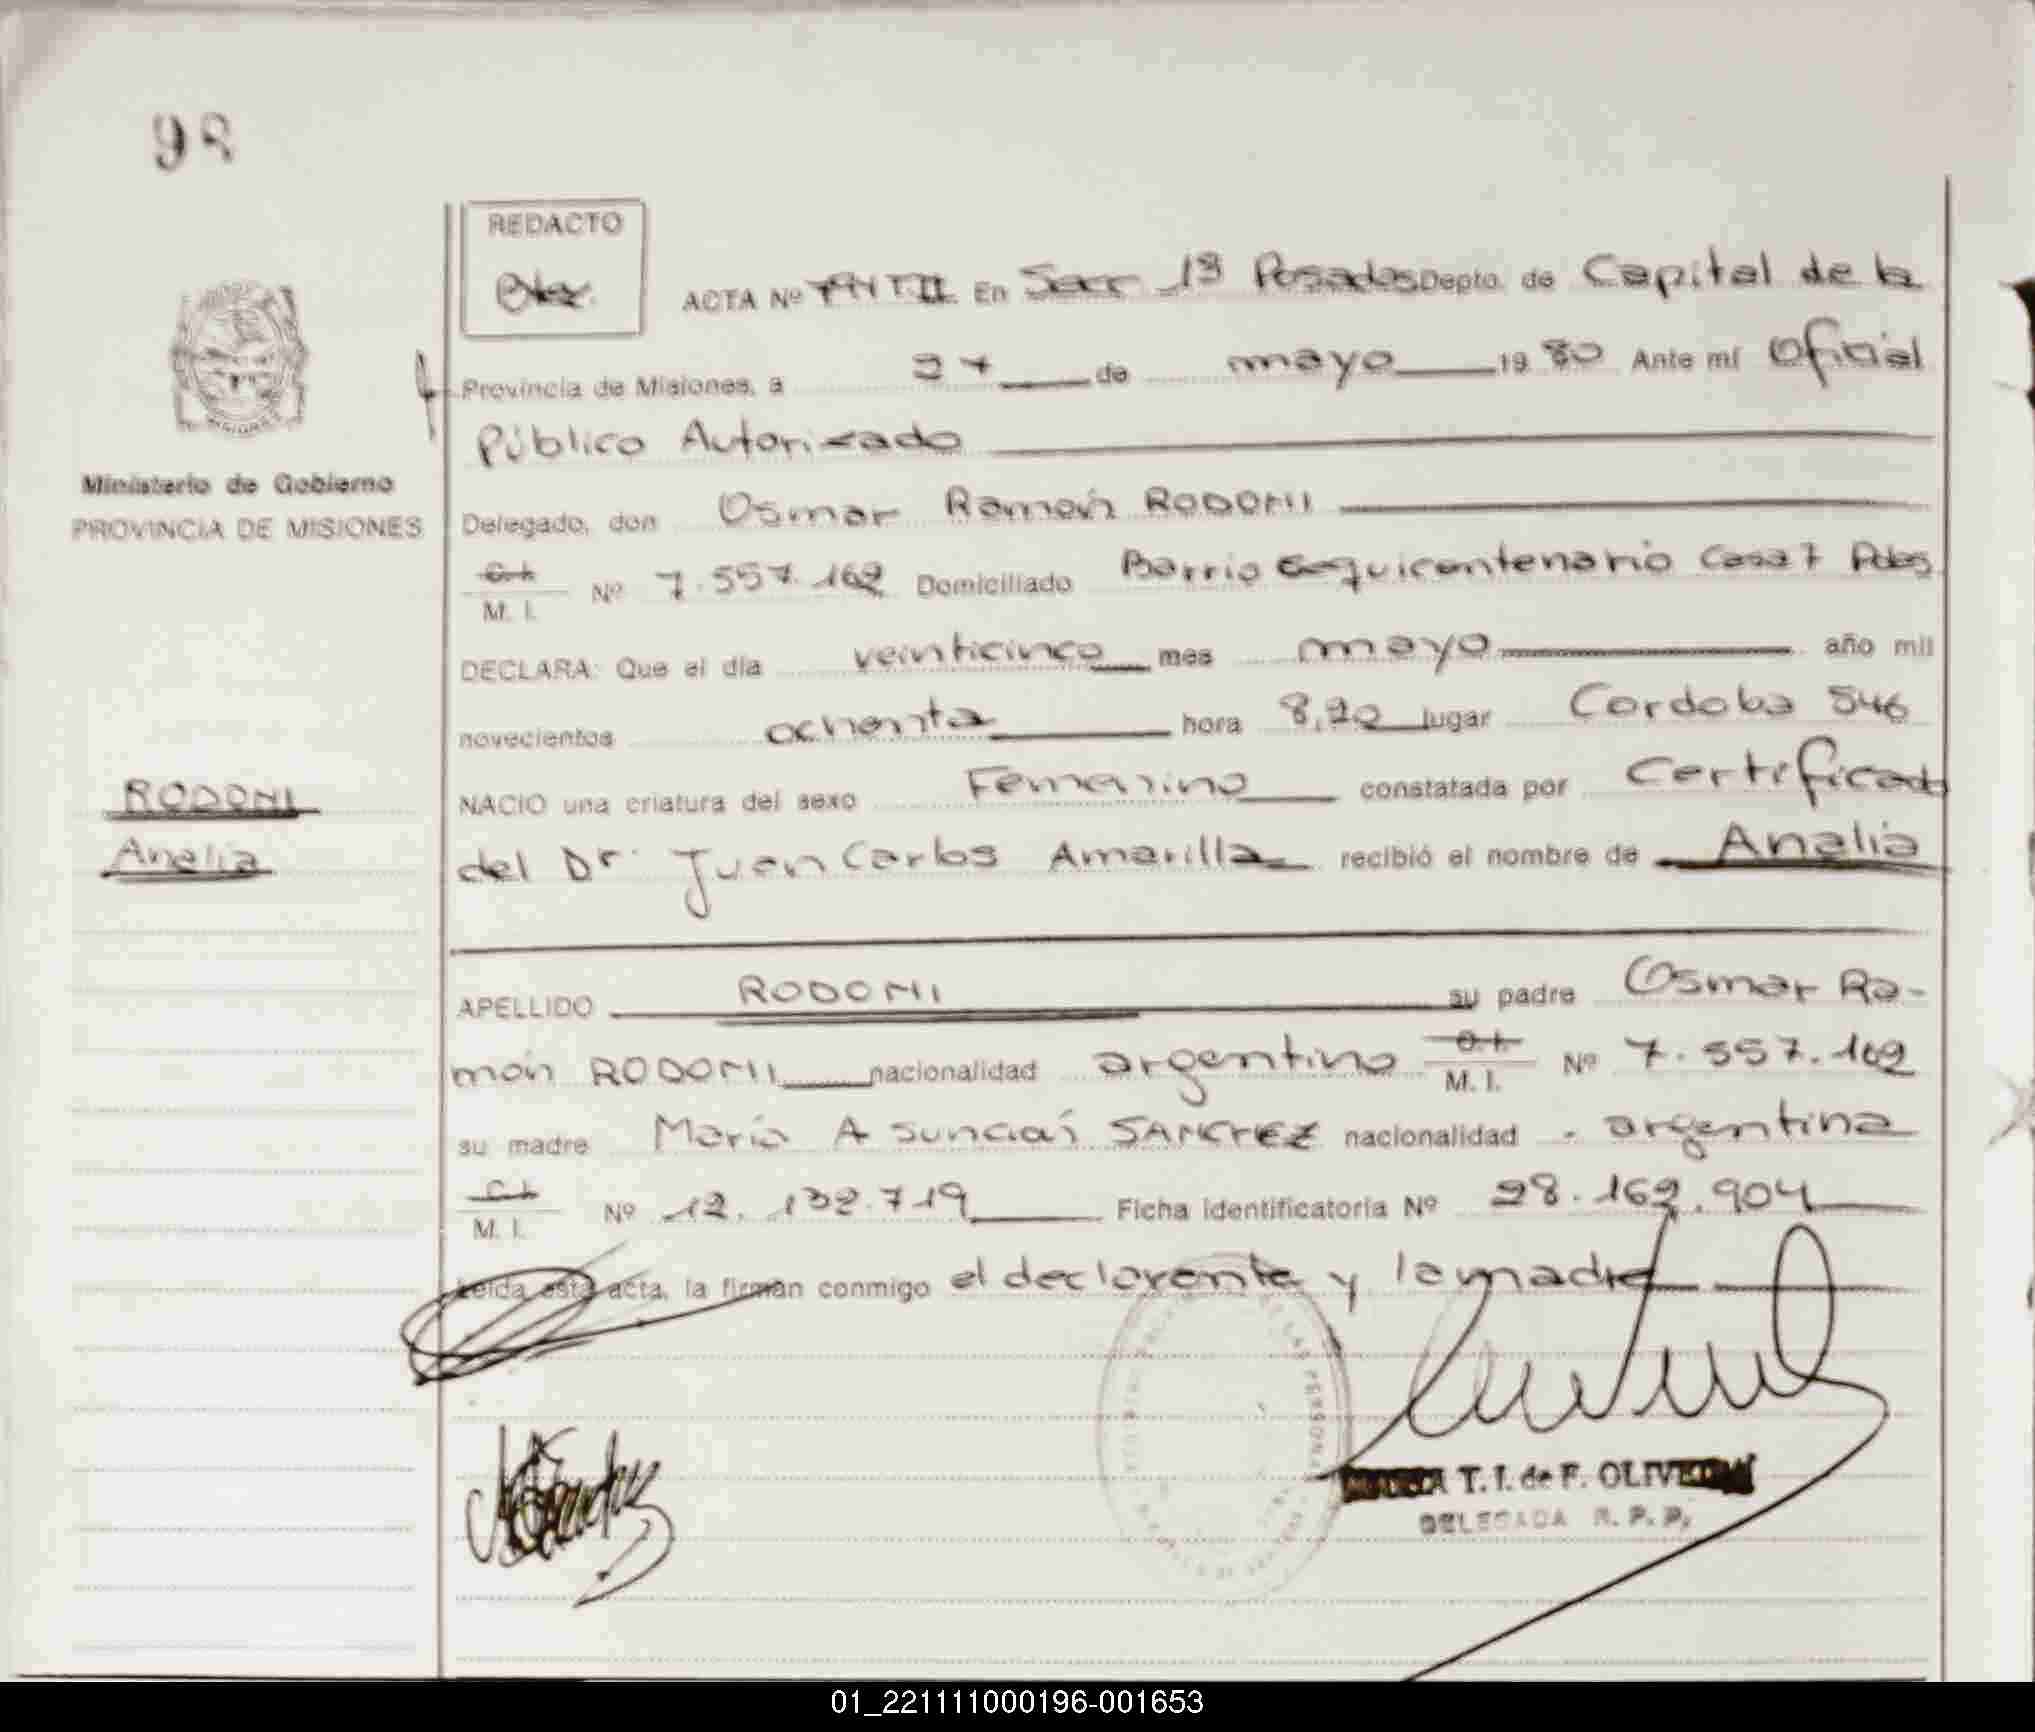 98
REDACTO
ACTA Nº En Secc 13 Posadas Depto. de Capital de la
Provincia de Misiones, a 27 de mayo 1980 Ante mí Oficial
Público Autorizado
Ministerio de Gobierno
PROVINCIA DE MISIONES
Delegado, don Osmar Ramón RODONI
C.I.
M. I. Nº 7.557.162 Domiciliado Barrio Sesquicentenario Casa 7 Pdas
DECLARA: Que el día veinticinco mes mayo año mil
novecientos ochenta hora 8,20 lugar Cordoba 546
RODONI
Analia
NACIO una criatura del sexo Femenino constatada por Certificado
del Dr. Juan Carlos Amarilla recibió el nombre de Analia
APELLIDO RODONI su padre Osmar Ra-
món RODONI nacionalidad argentino C.I.
M. I. Nº 7.557.162
su madre María Asunción SANCHEZ nacionalidad argentina
C.I.
M. I. Nº 12.132.719 Ficha identificatoria Nº 28.162.904
Leída esta acta, la firman conmigo el declarante y la madre
DE LAS PERSONAS
T. I. de F. OLIVEIRA
DELEGADA R. P. P.
01_221111000196-001653